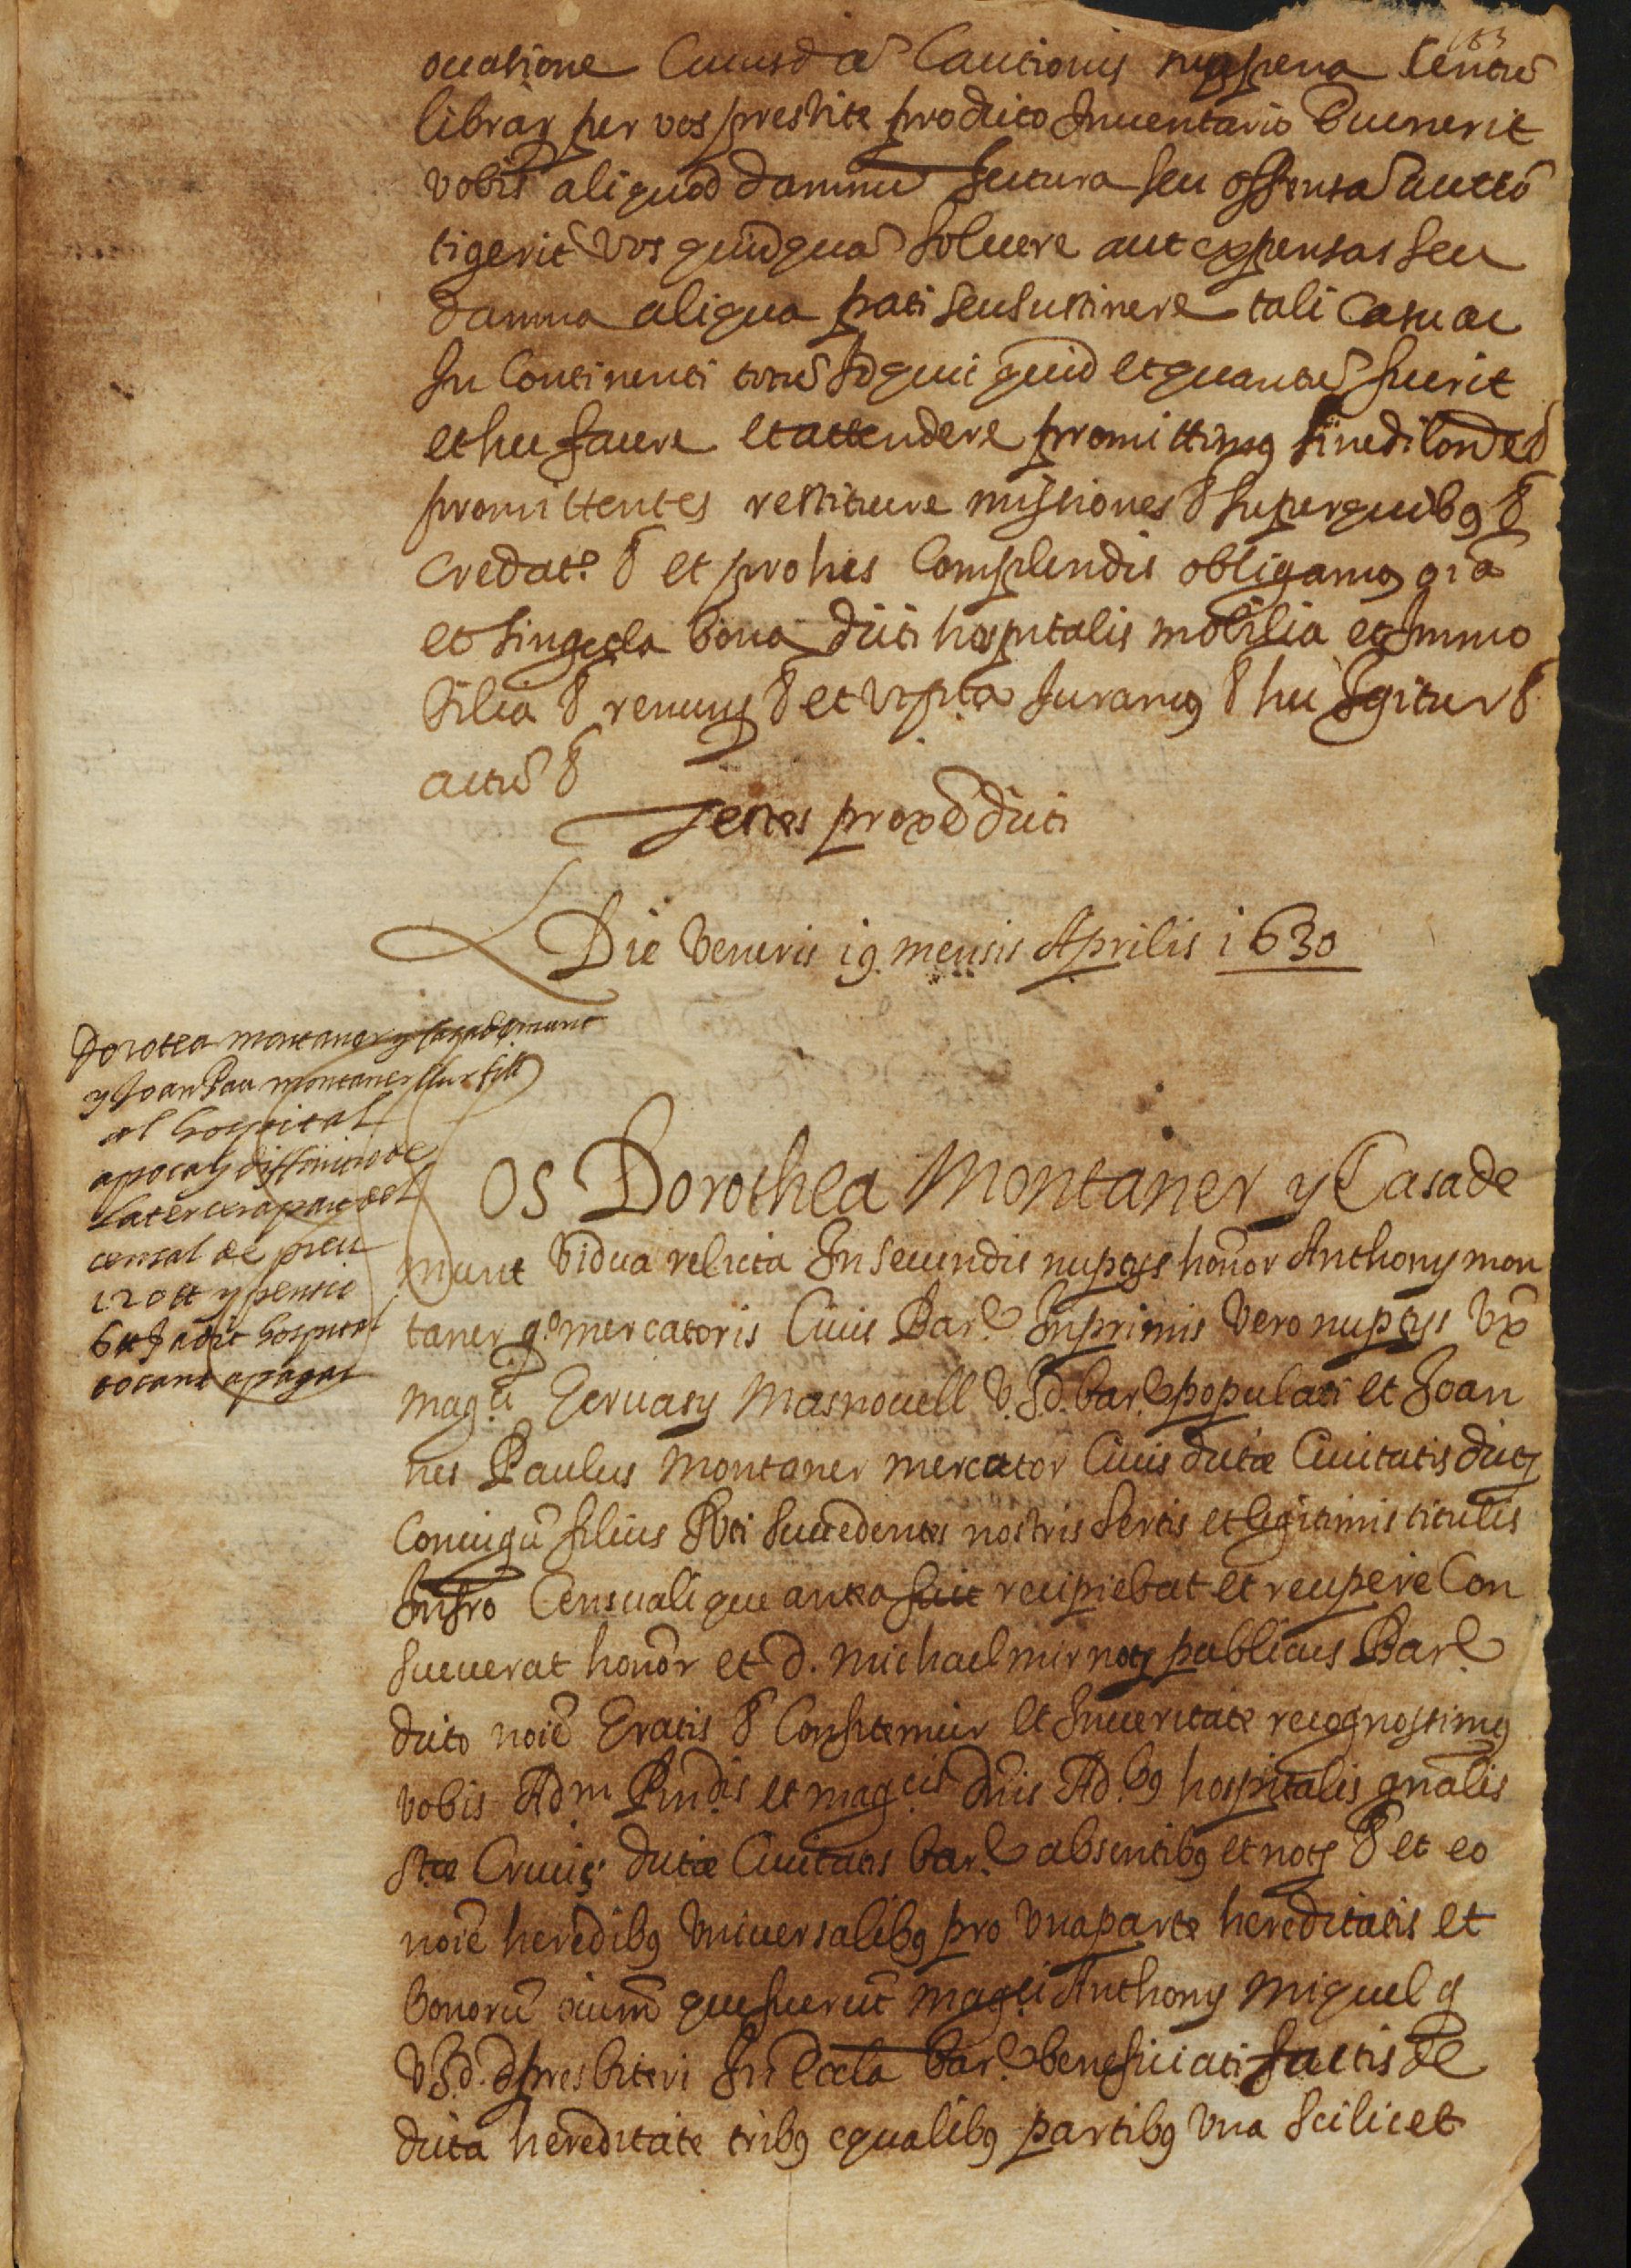 183
occasione Cuiusdã Cautionis sub pena Centũ
librar per vos prestite pro dicto Inuentario Euenerit
vobis aliquod damnũ Iactura seu offensa aut cõ
tigerit vos quidquã soluere aut expensas seu
damna aliqua pati seu sustinere tali casu ac
In Continenti totũ Id quic quid et quantũ fuerit
et hec facere et attendere promittimus sine dilone &
promittentes restituere missiones & super quibus &
credat. & et pro his Complendis obligamus oiã
et singula bona dicti hospitalis mobilia et Immo
bilia & renuns & et vt pta Iuramus & hec Igitur &
actũ &
Testes proxe dicti
Die Veneris 19 mensis Aprilis 1630
Dorotea montaner y Casademunt
y Joan Pau montaner llur fill
al hospital
apoca y diffinitio de
la tercera part del
censal de preu
120 ₶ y pensio
6 ₶ q a dit hospital
tocant a pagar
Os Dorothea Montaner y Casade
munt vidua relicta In secundis nuptys honor Anthony mon
taner q° mercatoris Ciuis Bar.e In primis vero nuptys vx
mag.ci Geruasy Masnouell V.J.d. bar.e populati et Joan
nes Paulus Montaner mercator Ciuis dictæ Ciuitatis dictȝ
Coniugũ filius Vti succedentes nostris sertis et legitimis titulis
In pro Censuali que antea recipiebat et recipere Con
sueuerat honor et d. Michael mir notȝ publicus Bar.e
dicto noiẽ Gratis & Confitemur et In veritate recognossimus
vobis Adm Rndis et magcis dnis Ad.bus hospitalis gnãlis
Stæ Crucis dictæ Ciuitatis bar.e absentibus et notȝ & et eo
noiẽ heredibus vniuersalibus pro vna parte hereditatis et
bonorũ oium que fuerũt mag.ci Anthony Miquel q
V.J.d. presbiteri In eccla bar.e beneficiati factis de
dicta hereditate tribus equalibus partibus vna scilicet